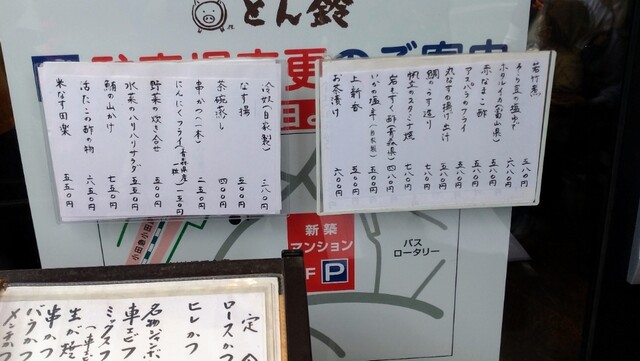 とん鈴
駐車場変更のご案内
若竹煮 五八〇円
そら豆の塩ゆで 五八〇円
ホタルイカ(富山県) 六八〇円
赤なまこ酢 五八〇円
アスパラのフライ 五八〇円
丸なすの揚げ出し 五八〇円
鯛のうす造り 七八〇円
帆立のスタミナ焼 七八〇円
岩もずく酢(青森県) 四八〇円
いかの塩辛(自家製)
上新香
お茶漬け 六〇〇円
冷奴(自家製) 三八〇円
なす揚 五〇〇円
茶碗蒸し 四〇〇円
串かつ(一本) 二五〇円
にんにくフライ(青森県産一粒) 五五〇円
野菜の炊き合せ 五〇〇円
水菜のハリハリサラダ 五五〇円
鮪の山かけ 七五〇円
活たこの酢の物 六五〇円
米なす田楽 五五〇円
新築
マンション
P
バス
ロータリー
小田急小田
定食
ロースかつ
ヒレかつ
名物ジャンボ
ミックスフ
車エビフ
生が
串かつ
バラかつ
メンチかつ